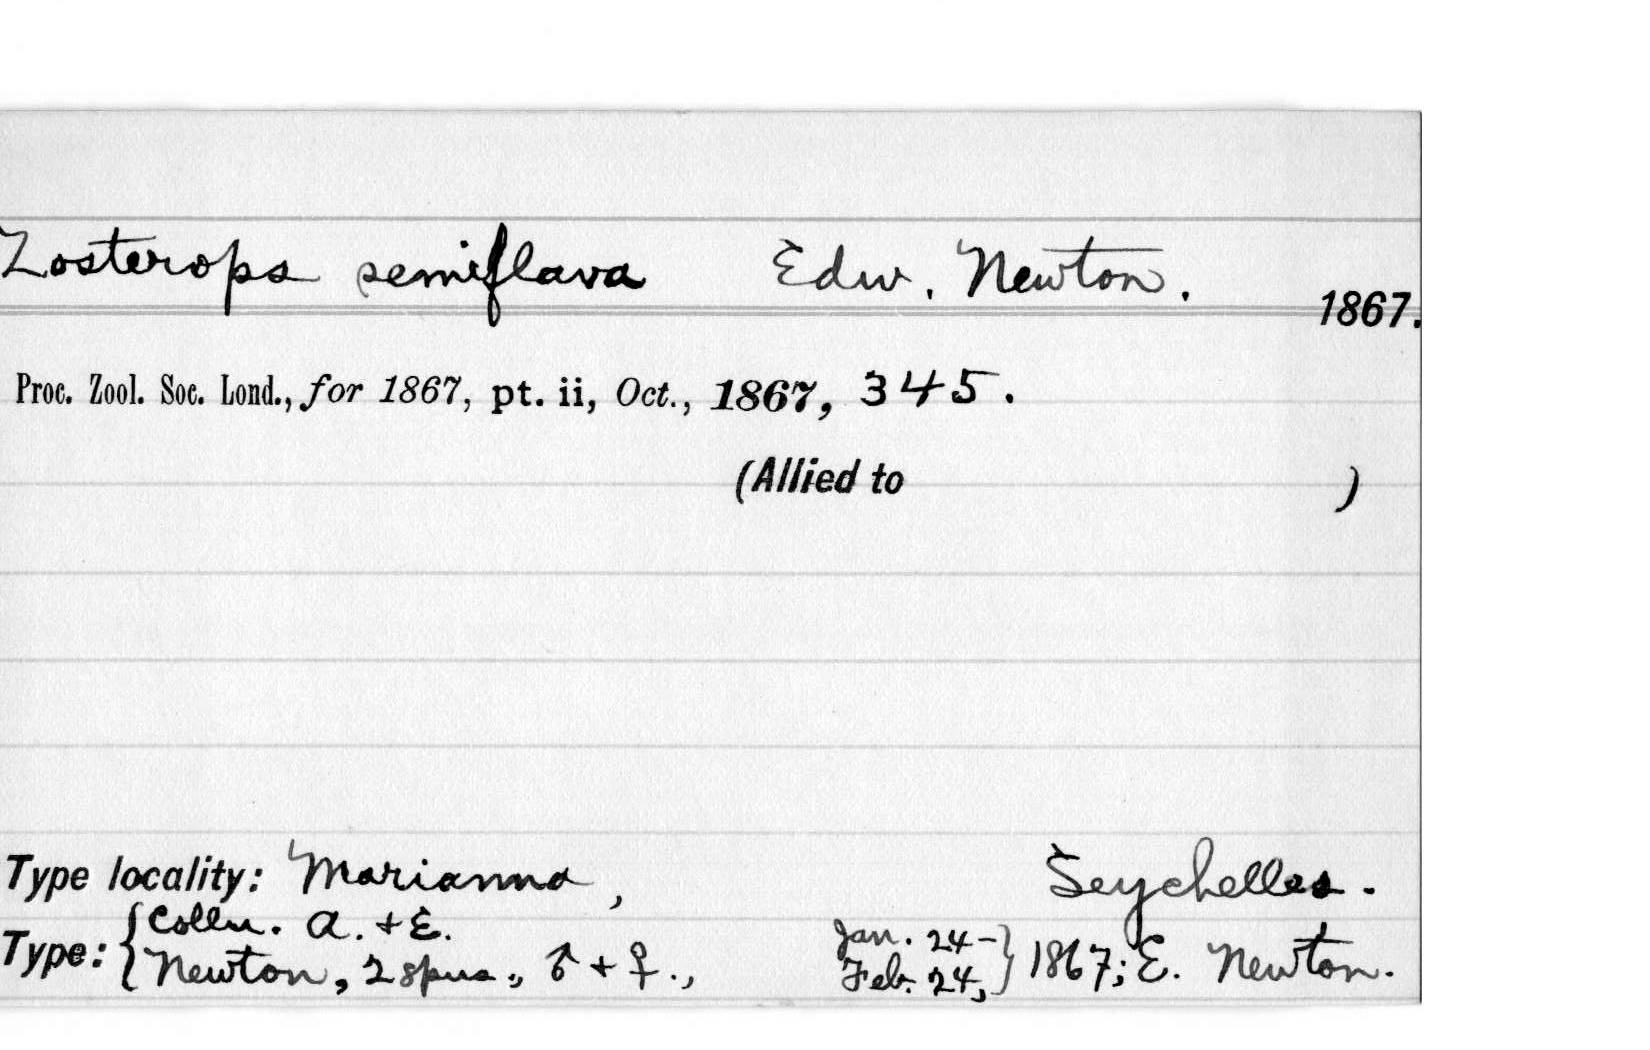 Zosterops semiflava Edw. Newton.
1867.
Proc. Zool. Soc. Lond., for 1867, pt. ii, Oct., 1867, 345.
(Allied to )
Type locality: Marianna, Seychelles.
Type: { Colln. A. + E. Newton, 2 spns., ♂ + ♀., Jan. 24- Feb. 24, } 1867; E. Newton.